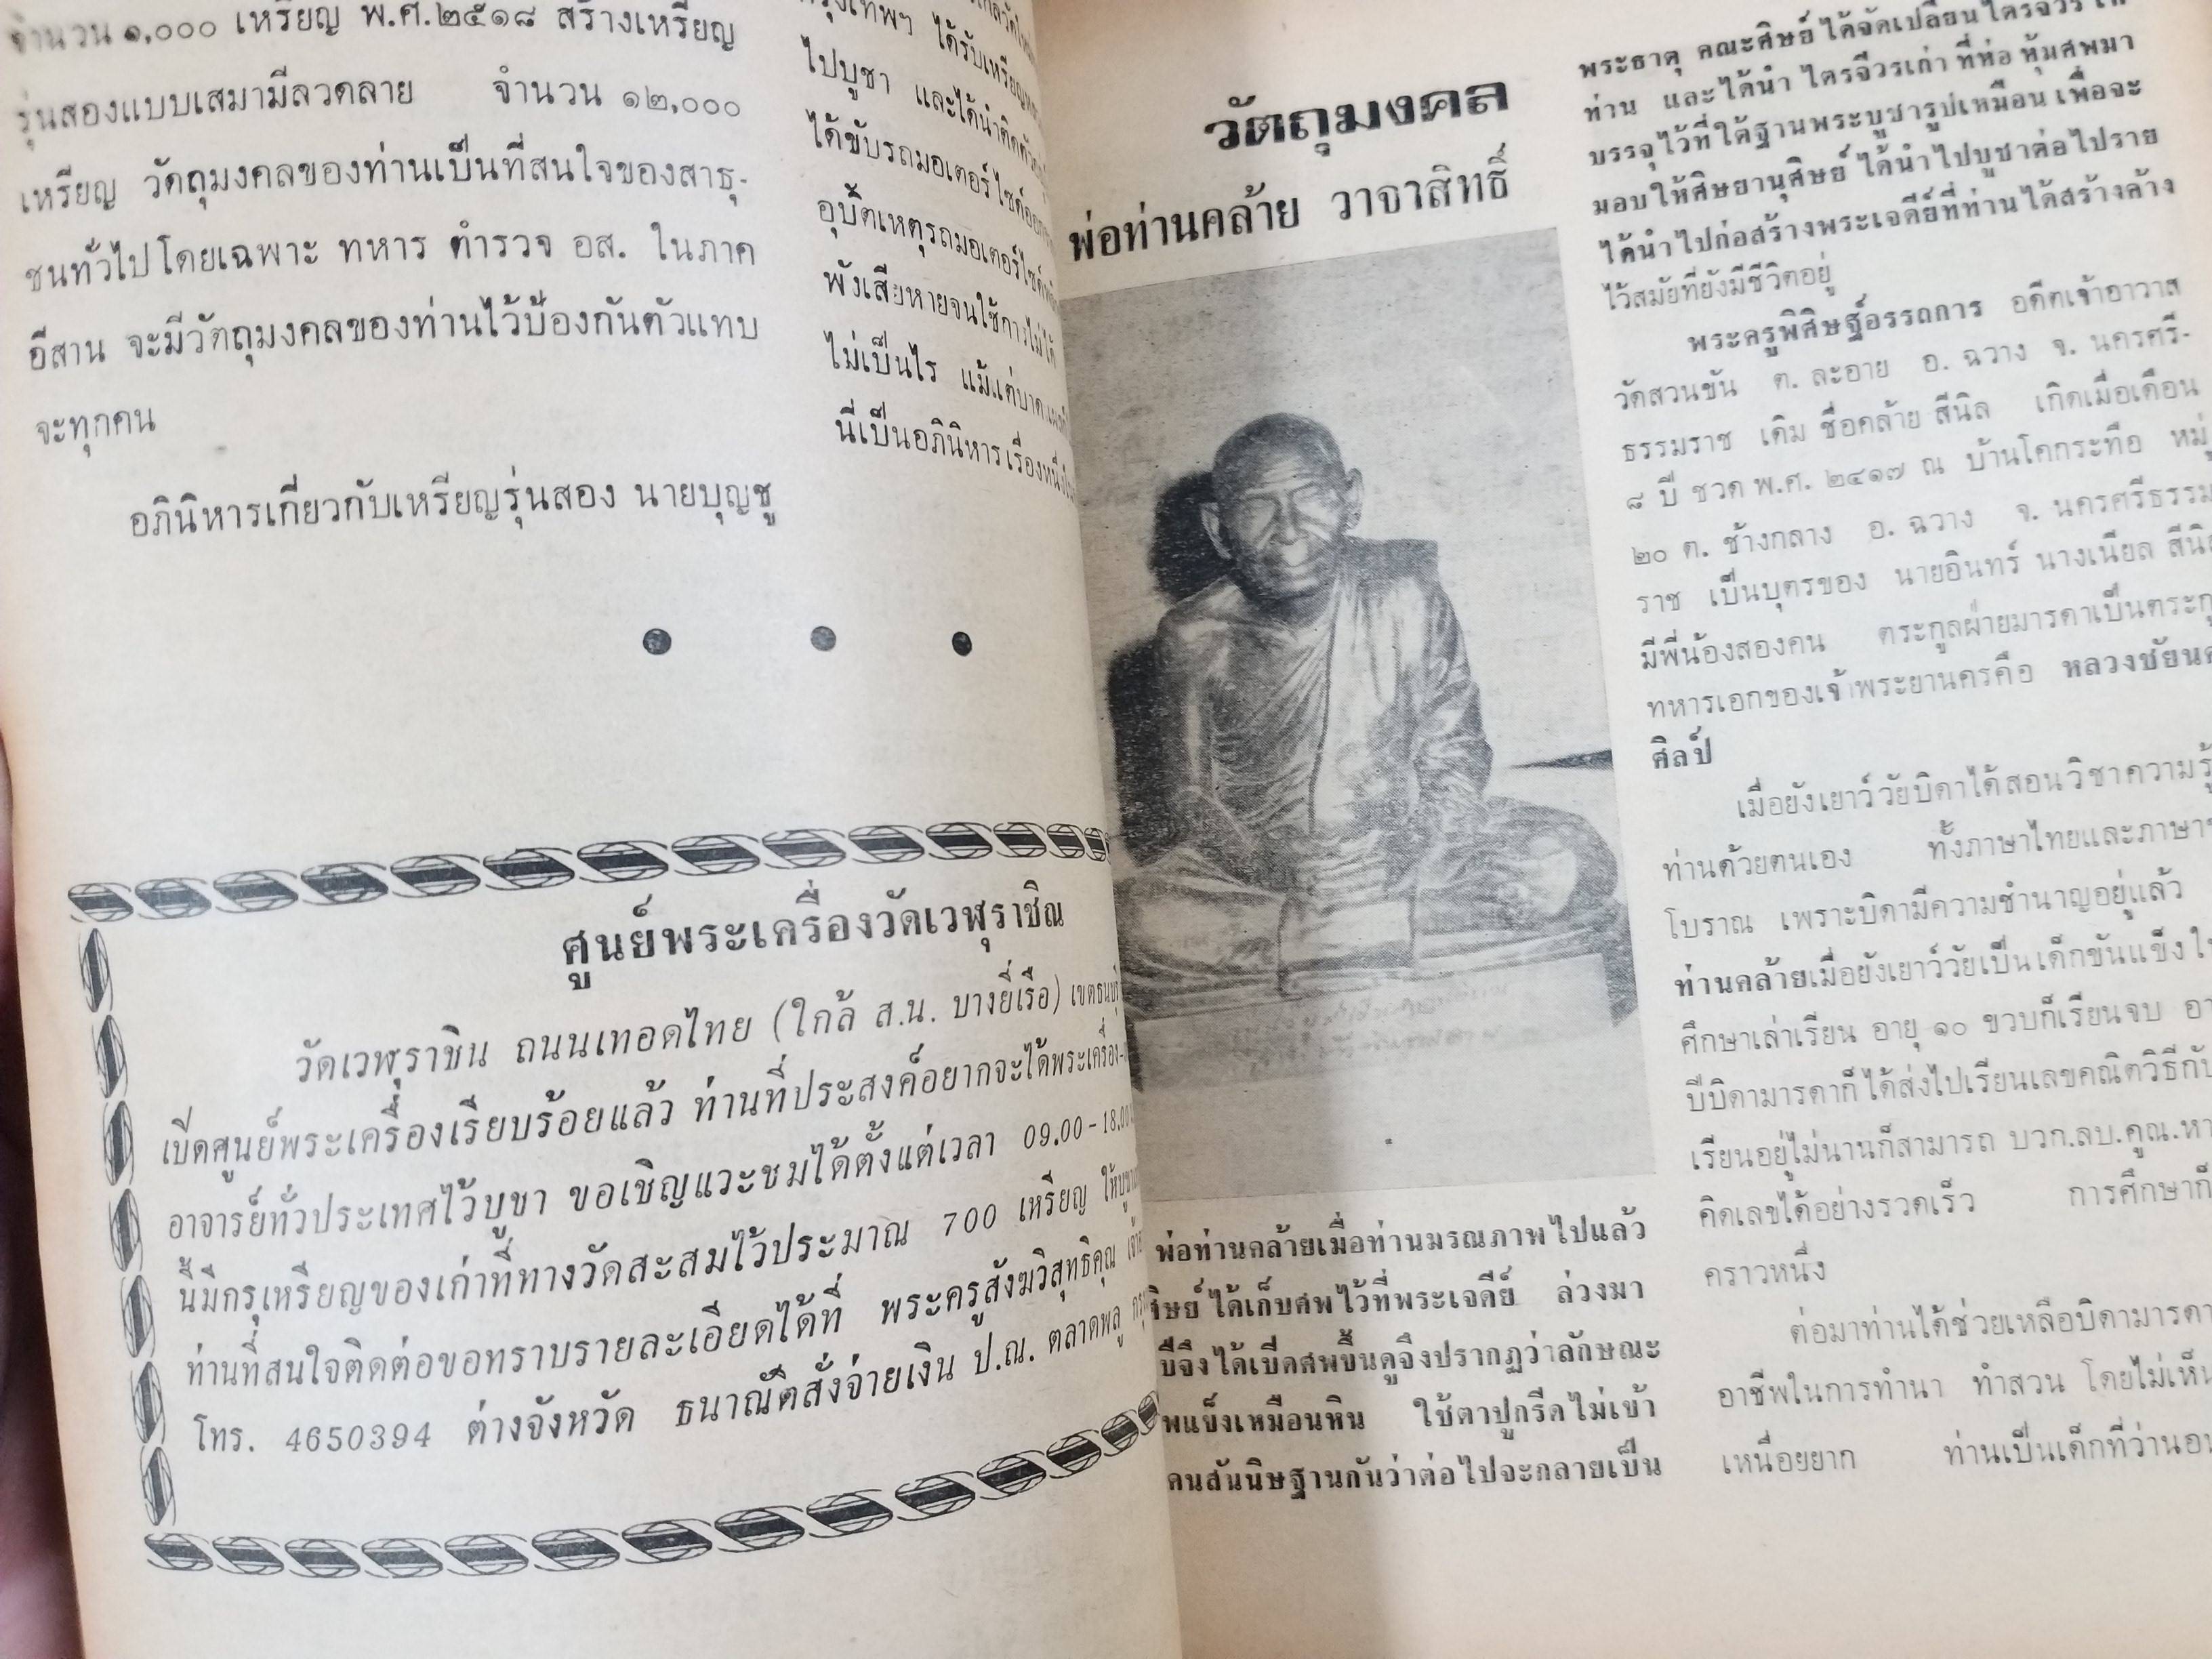 จำนวน ๑,๐๐๐ เหรียญ พ.ศ.๒๕๑๘ สร้างเหรียญ
รุ่นสองแบบเสมามีลวดลาย จำนวน ๑๒,๐๐๐
เหรียญ วัดถุมงคลของท่านเป็นที่สนใจของสาธุ-
ชนทั่วไปโดยเฉพาะ ทหาร ตำรวจ อส. ในภาค
อีสาน จะมีวัตถุมงคลของท่านไว้ป้องกันตัวแทบ
จะทุกคน
อภินิหารเกี่ยวกับเหรียญรุ่นสอง นายบุญชู
ได้รับเหรียญ
ไปบูชา และได้นำติดตัว
ได้ขับรถมอเตอร์ไซด์
อุบัติเหตุรถมอเตอร์ไซด์
พังเสียหายจนใช้การไม่ได้
ไม่เป็นไร แม้แต่บาดแผล
นี่เป็นอภินิหารเรื่องหนึ่ง
ศูนย์พระเครื่องวัดเวฬุราชิณ
วัดเวฬุราชิน ถนนเทอดไทย (ใกล้ ส.น. บางยี่เรือ) เขตธนบุรี
เปิดศูนย์พระเครื่องเรียบร้อยแล้ว ท่านที่ประสงค์อยากจะได้พระเครื่อง-
อาจารย์ทั่วประเทศไว้บูชา ขอเชิญแวะชมได้ตั้งแต่เวลา 09.00-18.00
นี้มีกรุเหรียญของเก่าที่ทางวัดสะสมไว้ประมาณ 700 เหรียญ ให้บูชา
ท่านที่สนใจติดต่อขอทราบรายละเอียดได้ที่ พระครูสังฆวิสุทธิคุณ
โทร. 4650394 ต่างจังหวัด ธนาณัติสั่งจ่ายเงิน ป.ณ. ตลาดพลู
วัตถุมงคล
พ่อท่านคล้าย วาจาสิทธิ์
พ่อท่านคล้ายเมื่อท่านมรณภาพไปแล้ว
ศิษย์ได้เก็บศพไว้ที่พระเจดีย์ ล่วงมา
ปีจึงได้เปิดศพขึ้นดูจึงปรากฏว่าลักษณะ
พแข็งเหมือนหิน ใช้ตาปูกรีดไม่เข้า
คนสันนิษฐานกันว่าต่อไปจะกลายเป็น
พระธาตุ คณะศิษย์ได้จัดเปลี่ยนไตรจีวร
ท่าน และได้นำ ไตรจีวรเก่า ที่ห่อ หุ้มศพมา
บรรจุไว้ที่ใต้ฐานพระบูชารูปเหมือน เพื่อจะ
มอบให้ศิษยานุศิษย์ ได้นำไปบูชาต่อไปราย
ได้นำไปก่อสร้างพระเจดีย์ที่ท่านได้สร้างค้าง
ไว้สมัยที่ยังมีชีวิตอยู่
พระครูพิศิษฐ์อรรถการ อดีตเจ้าอาวาส
วัดสวนขัน ต. ละอาย อ. ฉวาง จ. นครศรี-
ธรรมราช เดิม ชื่อคล้าย สีนิล เกิดเมื่อเดือน
๘ ปี ชวด พ.ศ. ๒๔๑๗ ณ บ้านโคกระทือ หมู่
๒๐ ต. ช้างกลาง อ. ฉวาง จ. นครศรีธรรม
ราช เป็นบุตรของ นายอินทร์ นางเนียล สีนิล
มีพี่น้องสองคน ตระกูลฝ่ายมารดาเป็นตระกู
ทหารเอกของเจ้าพระยานครคือ หลวงชัยน
ศิลป์
เมื่อยังเยาว์วัยบิดาได้สอนวิชาความรู้
ท่านด้วยตนเอง ทั้งภาษาไทยและภาษา
โบราณ เพราะบิดามีความชำนาญอยู่แล้ว
ท่านคล้ายเมื่อยังเยาว์วัยเป็นเด็กขันแข็ง
ศึกษาเล่าเรียน อายุ ๑๐ ขวบก็เรียนจบ
ปีบิดามารดาก็ได้ส่งไปเรียนเลขคณิตวิธีกับ
เรียนอยู่ไม่นานก็สามารถ บวก.ลบ.คูณ.หา
คิดเลขได้อย่างรวดเร็ว การศึกษาก็
คราวหนึ่ง
ต่อมาท่านได้ช่วยเหลือบิดามารดา
อาชีพในการทำนา ทำสวน โดยไม่เห็น
เหนื่อยยาก ท่านเป็นเด็กที่ว่านอน